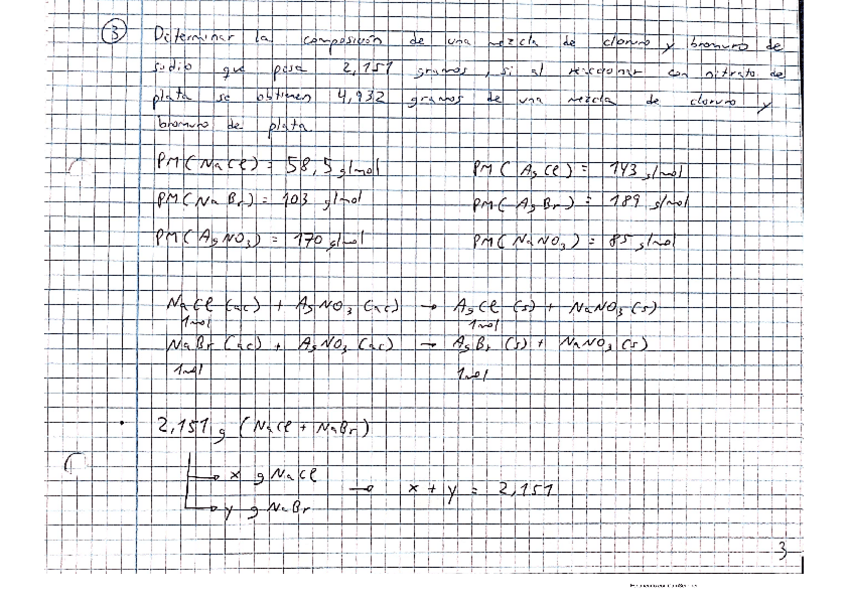 3 Determinar la composición de una mezcla de cloruro y bromuro de
sodio que pesa 2,151 gramos, si al reaccionar con nitrato de
plata se obtienen 4,932 gramos de una mezcla de cloruro y
bromuro de plata
PM(NaCl) = 58,5 g/mol PM(AgCl) = 143 g/mol
PM(NaBr) = 103 g/mol PM(AgBr) = 189 g/mol
PM(AgNO3) = 170 g/mol PM(NaNO3) = 85 g/mol
NaCl (ac) + AgNO3 (ac) → AgCl (s) + NaNO3 (s)
1mol 1mol
NaBr (ac) + AgNO3 (ac) → AgBr (s) + NaNO3 (s)
1mol 1mol
• 2,151 g (NaCl + NaBr)
x g NaCl
→ x + y = 2,151
y g NaBr
3